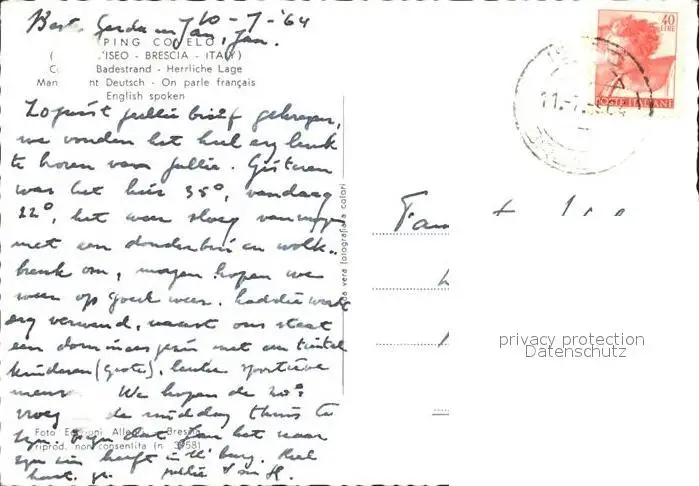 Beste Gerda en Jan, Jan.
10-7-'64
PING CO ELO
ISEO - BRESCIA - ITALY)
Badestrand - Herrliche Lage
Man nt Deutsch - On parle français
English spoken
Zojuist jullie brief gekregen,
we vonden het heel erg leuk
te horen van jullie. Gisteren
was het hier 35°, vandaag
22°, het weer sloeg
met een donderbui en wolk..
breuk om, morgen hopen we
weer op goed weer.
erg verwend, naast ons staat
een met een tiental
kinderen (grote), leuke sportieve
mensen We hopen de 20e
vroeg de middag thuis te
zijn. Fijn dat Jan het naar
zijn zin heeft in Hart.
jullie
Foto Edizioni Brescia
riprod. non consentita (n 3958)
vera fotografia a colori
40
LIRE
POSTE ITALIANE
11.-7.
Fam
privacy protection
Datenschutz